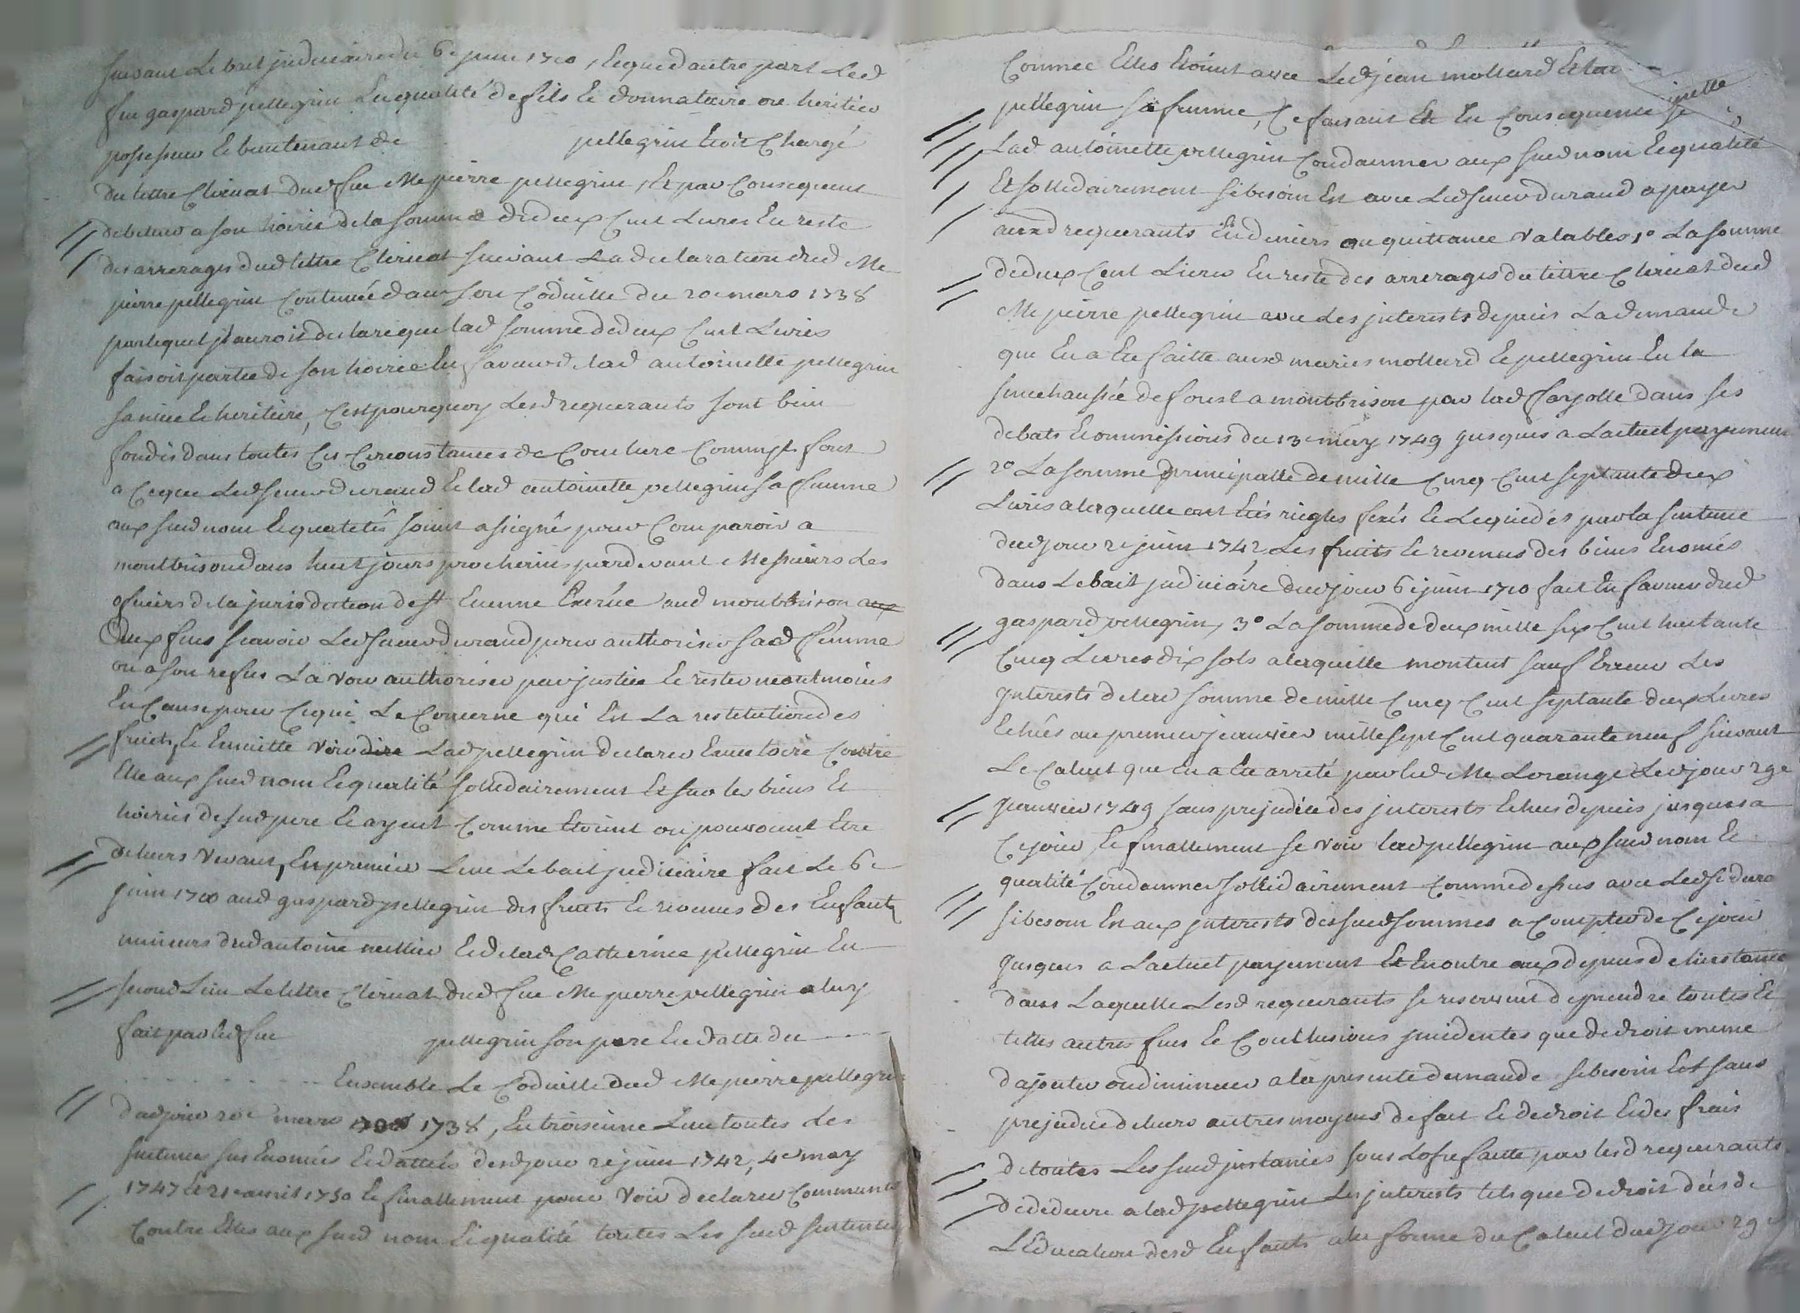 suivant Le bail judiciaire du 6e juin 1710, Et que d'autre part Led
feu gaspard pellegrin En qualité de fils Et donnataire ou heritier
possesseur Et bientenant de pellegrin Etoit Chargé
du tittre Clerical dud feu Me pierre pellegrin, Et par Consequent
debiteur a son hoirie de la somme de deux Cent Livres En reste
des arrerages dud tittre Clerical suivant La declaration dud Me
pierre pellegrin Contenüe dans son Codicille du 20e mars 1738
par lequel il auroit declaré que lad somme de deux Cent Livres
faisoit partie de son hoirie En faveur de lad antoinette pellegrin
sa niece Et heritiere, C'est pourquoy Lesd requerants sont bien
fondés dans toutes Ces Circonstances de Conclure Comme ils font
a Ce que Led sieur durand Et lad antoinette pellegrin sa femme
aux susd nom Et qualités soint assignés pour Comparoir a
montbrison dans huit jours prochains pardevant Messieurs les
officiers de la jurisdiction de st Etienne Exercée aud montbrison
aux fins scavoir Led sieur durand pour authoriser sad femme
ou a son refus La voir authoriser par justice Et rester neantmoins
En Cause pour Ce qui Le Concerne qui Est La restitution des
fruits, Et Ensuitte voir dire Lad pellegrin declarer Executoire Contre
Elle aux susd nom Et qualité sollidairement Et sur les biens Et
hoiries de sud pere Et ayeul Comme Etoint ou pouvoient Etre
de leurs vivant, En premier Lieu Le bail judiciaire fait Le 6e
juin 1710 aud gaspard pellegrin des fruits Et revenus des Enfants
mineurs dud antoine Et de lad Catherine pellegrin En
second Lieu Le tittre Clerical dud feu Me pierre pellegrin a luy
fait par led feu pellegrin son pere En datte du
Ensemble Le Codicille dud Me pierre pellegrin
dud jour 20e mars 1738, En troisieme Lieu toutes les
sentences sus Enoncées Et dattées desd jour 2e juin 1742, 4e may
1747 Et 21e avril 1750 Et finallement pour voir declarer Communes
Contre Elles aux susd nom Et qualité toutes Les susd sentences
Comme Elles Etoint avec Led jean mottard Et lad
pellegrin sa femme, Ce faisant Et En Consequence
Lad antoinette pellegrin Condamner aux susd nom Et qualité
Et sollidairement si besoin Est avec Led sieur durand a payer
auxd requerants En deniers ou quittance valables, 1o La somme
de deux Cent Livres En reste des arrerages du tittre Clerical dud
Me pierre pellegrin avec Les interests depuis La demande
que En a Eté faitte auxd mariés mottard Et pellegrin En la
senechaussée de forest a montbrison par lad fayolle dans ses
debats Et omissions du 13e may 1749 jusques a L'actuel payement
2o La somme principalle de mille Cinq Cent septante deux
Livres a laquelle ont Etés reglés fixés Et Liquidés par la sentence
dud jour 2e juin 1742, Les fruits Et revenus des biens Enoncés
dans Le bail judiciaire dud jour 6e juin 1710 fait En faveur dud
gaspard pellegrin, 3o La somme de deux mille six Cent huitante
Cinq Livres dix sols a laquelle montent sauf Erreur Les
interests de lad somme de mille Cinq Cent septante deux Livres
Echües au premier janvier mille sept Cent quarante neuf suivant
Le Calcul que En a Eté arreté par led Me Lorange Led jour 29e
janvier 1749 sans prejudice des interests Echus depuis jusques a
Ce jour, Et finallement se voir lad pellegrin aux susd nom Et
qualité Condamner sollidairement Comme dessus avec Led sr durand
si besoin Est aux interests des susd sommes a Compter de Ce jour
jusques a L'actuel payement Et En outre aux depens de L'instance
dans Laquelle Lesd requerants se reservent de prendre toutes Et
telles autres fins Et Conclusions incidentes que de droit meme
d'ajouter ou diminuer a la presente demande si besoin Est sans
prejudice de leurs autres moyens de fait Et de droit Et des frais
de toutes Les susd instances sous L'ofre faitte par lesd requerants
de deduire a lad pellegrin Les interests tels que de droit de
L'Education desd Enfants a la forme du Calcul dud jour 29e